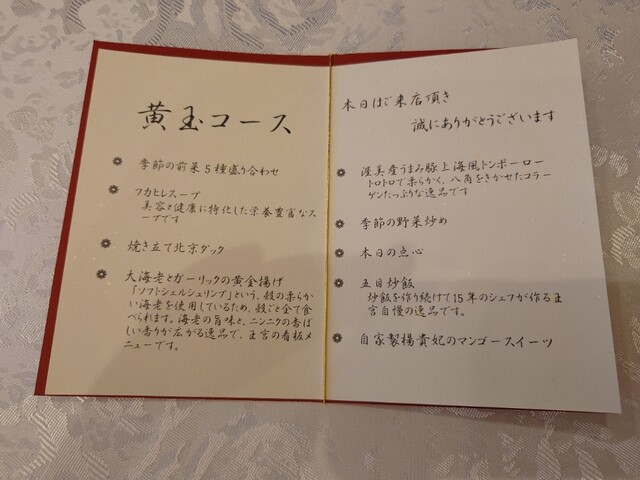 黄玉コース
季節の前菜5種盛り合わせ
フカヒレスープ
美容と健康に特化した栄養豊富なス
ープです
焼き立て北京ダック
大海老とガーリックの黄金揚げ
「ソフトシェルシュリンプ」という、殻の柔らか
い海老を使用しているため、殻ごと全て食
べられます。海老の旨味と、ニンニクの香ば
しい香りが広がる逸品で、王宮の看板メ
ニューです。
本日はご来店頂き
誠にありがとうございます
渥美産うまみ豚上海風トンポーロー
トロトロで柔らかく、八角をきかせたコラー
ゲンたっぷりな逸品です
季節の野菜炒め
本日の点心
五目炒飯
炒飯を作り続けて15年のシェフが作る王
宮自慢の逸品です。
自家製楊貴妃のマンゴースイーツ